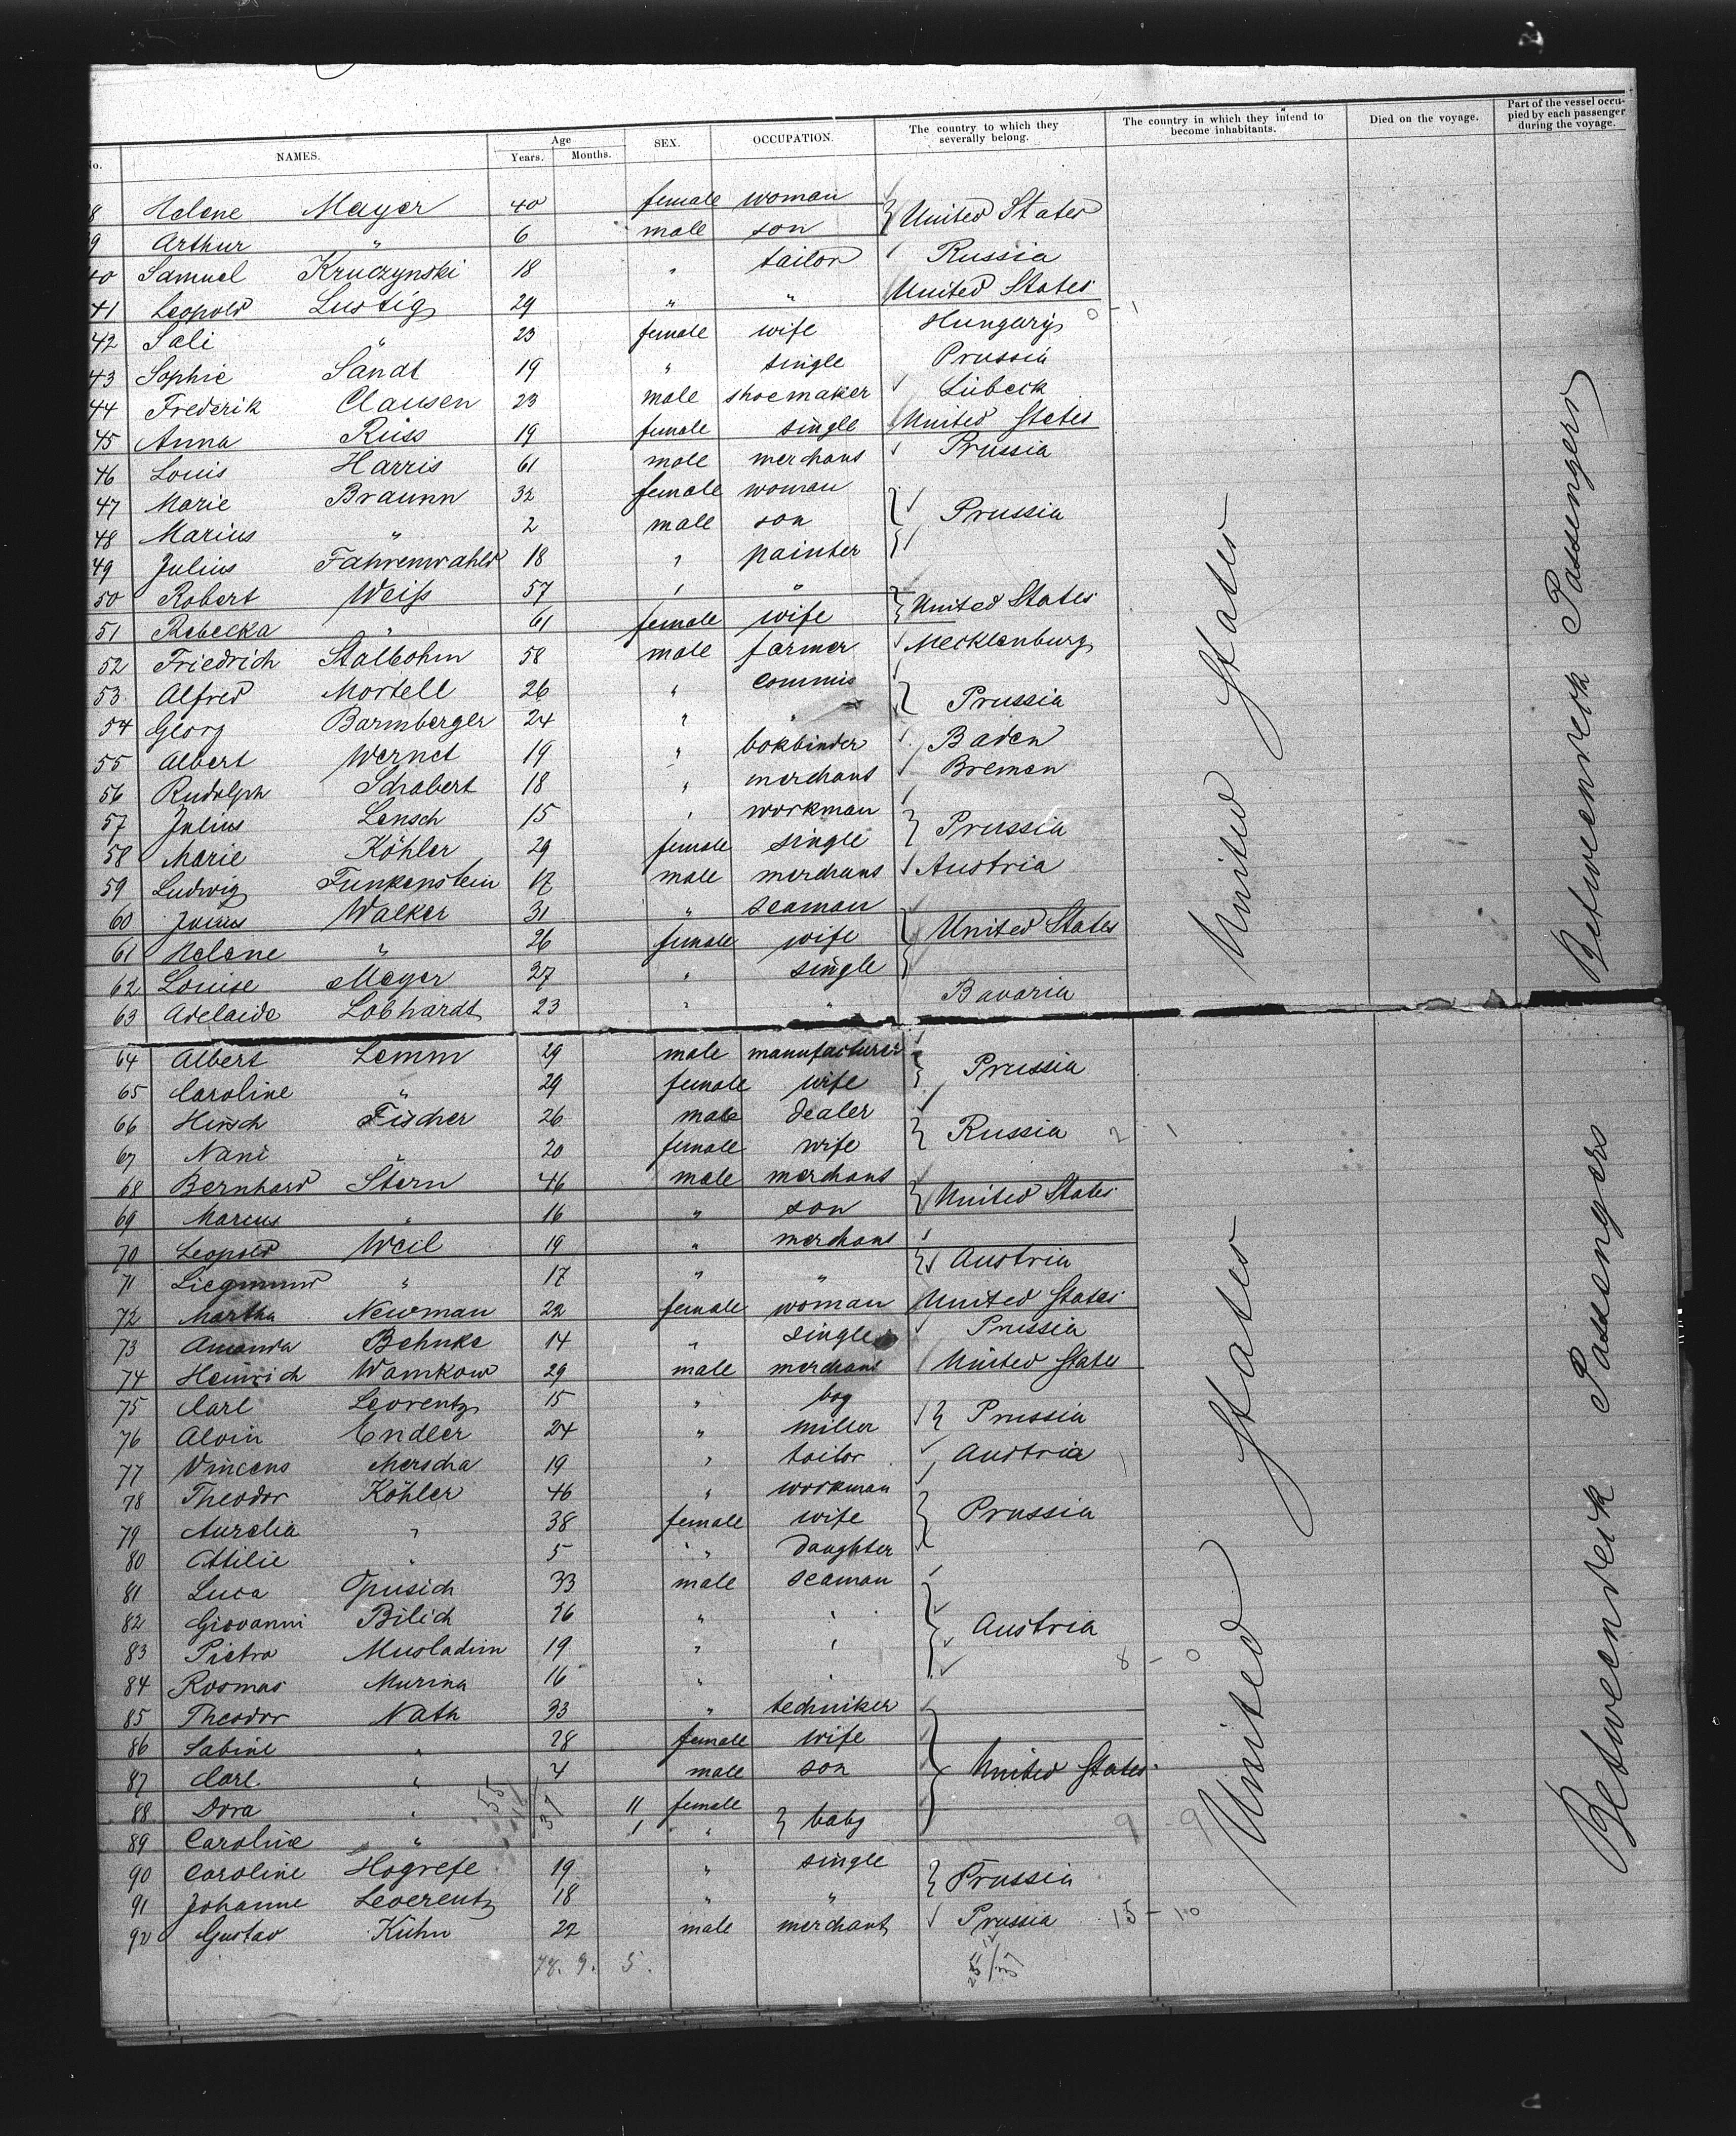 No. NAMES. Age Years. Months. SEX. OCCUPATION. The country to which they severally belong. The country in which they intend to become inhabitants. Died on the voyage. Part of the vessel occupied by each passenger during the voyage.
8 Helene Mayer 40 female woman } United States
9 Arthur " 6 male son
40 Samuel Kruczynski 18 " tailor Russia
41 Leopold Lustig 29 " " United States
42 Sali " 23 female wife Hungary 0 - 1
43 Sophie Sandt 19 " single Prussia
44 Frederik Clausen 23 male shoemaker Lübeck
45 Anna Rüss 19 female single United States
46 Louis Harris 61 male merchant Prussia
47 Marie Braunn 32 female woman } Prussia
48 Marius " 2 male son
49 Julius Fahrenwahld 18 " painter }
50 Robert Weiss 57 " " } United States
51 Rebecka " 61 female wife
52 Friedrich Stalbohm 58 male farmer Mecklenburg
53 Alfred Mortell 26 " commis } Prussia
54 Georg Barmberger 24 " "
55 Albert Wernet 19 " bokbinder Baden
56 Rudolph Schabert 18 " merchant Bremen
57 Julius Lensch 15 " workman } Prussia
58 Marie Köhler 29 female single
59 Ludwig Funkenstein 17 male merchant Austria
60 Julius Walker 31 " seaman } United States
61 Helene " 26 female wife
62 Louise Meyer 27 " single }
63 Adelaide Lobhardt 23 " " Bavaria
United States
Betweenweck Passengers
64 Albert Lemm 29 male manufacturer } Prussia
65 Caroline " 29 female wife
66 Hirsch Fischer 26 male dealer } Russia 2 1
67 Nani " 20 female wife
68 Bernhard Stern 46 male merchant } United States
69 Marcus " 16 " son
70 Leopold Weil 19 " merchant } Austria
71 Liegmund " 17 " "
72 Martha Newman 22 female woman United States
73 Amanda Behnke 14 " single Prussia
74 Heinrich Wamkow 29 male merchant United States
75 Carl Leorentz 15 " boy } Prussia
76 Alvin Endler 24 " miller
77 Vincens Merscha 19 " tailor Austria
78 Theodor Köhler 46 " workman } Prussia
79 Aurelia " 38 female wife
80 Ottilie " 5 " daughter
81 Luca Opusich 33 male seaman } Austria
82 Giovanni Bilich 26 " "
83 Pietro Musladim 19 " "
84 Rosmas Murina 16 " " 8 - 0
85 Theodor Nath 33 " techniker } United States
86 Sabine " 28 female wife
87 Carl " 4 male son
88 Dora " 11 female } baby
89 Caroline " 1 " 9 - 9
90 Caroline Hogrefe 19 " single } Prussia
91 Johanne Leverentz 18 " "
92 Gustav Kühn 22 male merchant Prussia 15 - 10
78. 9. 5.
United States
Betweendeck Passengers